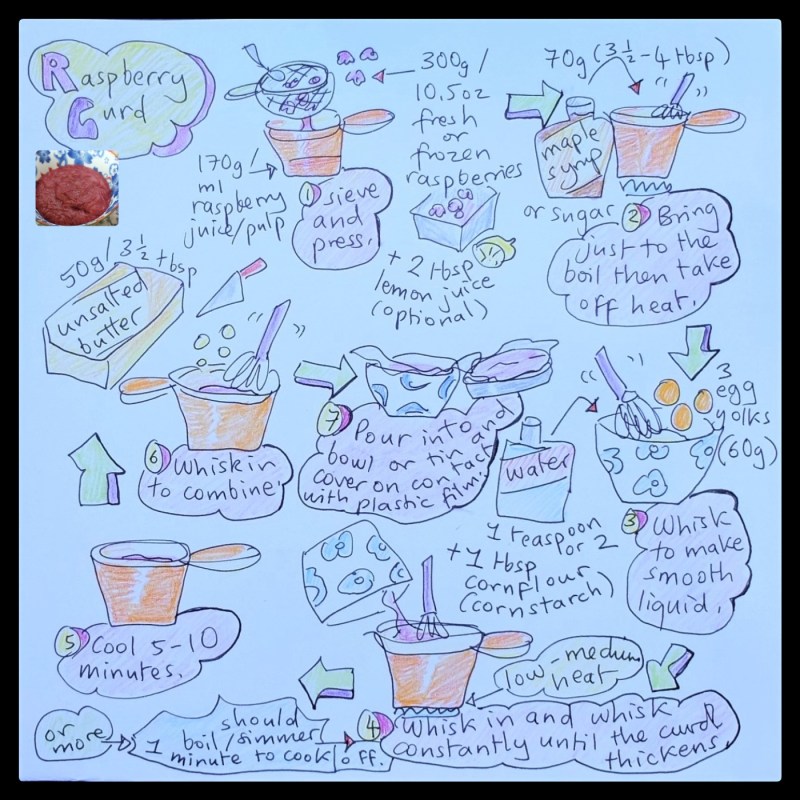 Raspberry
Curd
300g/
10.5oz
fresh
or
frozen
raspberries
+ 2 tbsp
lemon juice
(optional)
170g/
ml
raspberry
juice/pulp
1 sieve
and
press.
70g (3 1/2 - 4 tbsp)
maple
syrup
or sugar
2 Bring
just to the
boil then take
off heat.
3
egg
yolks
(60g)
water
1 teaspoon
or 2
+ 1 tbsp
cornflour
(cornstarch)
3 Whisk
to make
smooth
liquid.
low-medium
heat
4 Whisk in and whisk
constantly until the curd
thickens.
should
boil/simmer
1 minute to cook off.
or
more
5 Cool 5-10
minutes.
50g/3 1/2 tbsp
unsalted
butter
6 Whisk in
to combine
7 Pour into
bowl or tin and
cover on contact
with plastic film.